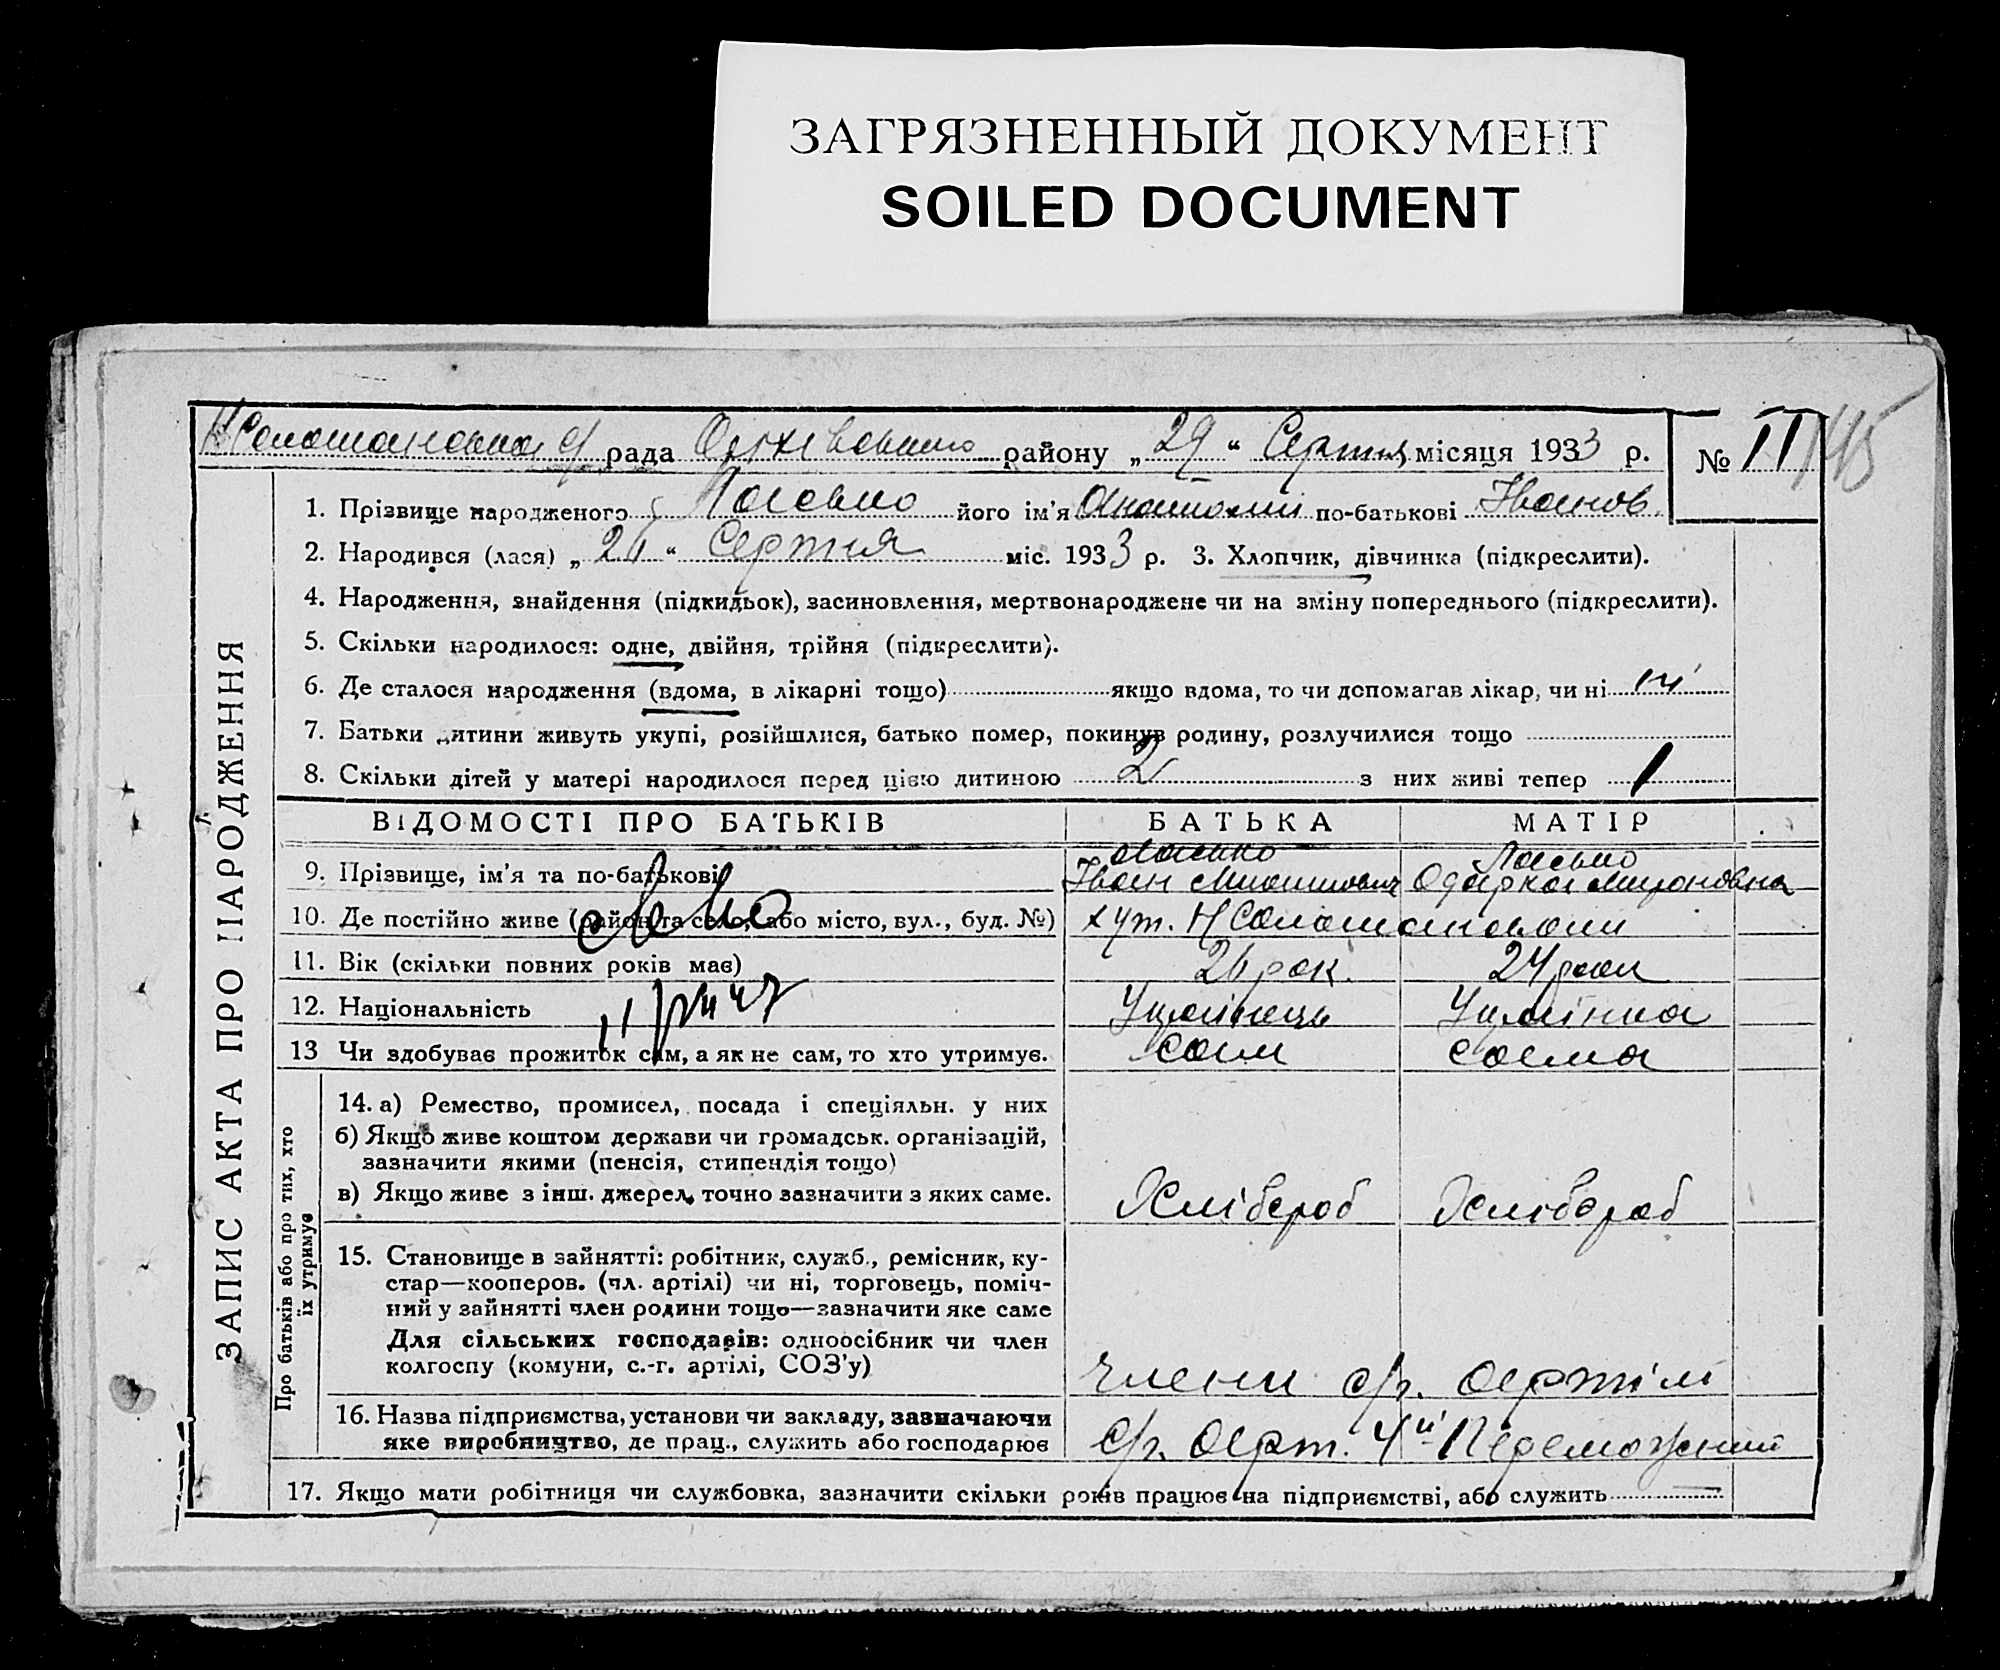 ЗАГРЯЗНЕННЫЙ ДОКУМЕНТ
SOILED DOCUMENT
рада району „29“ Серпня місяця 1933 р. № 11
ЗАПИС АКТА ПРО НАРОДЖЕННЯ
1. Прізвище народженого його ім'я по-батькові Іванов.
2. Народився (лася) „26“ Серпня міс. 1933 р. 3. Хлопчик, дівчинка (підкреслити).
4. Народження, знайдення (підкидьок), засиновлення, мертвонароджене чи на зміну попереднього (підкреслити).
5. Скільки народилося: одне, двійня, трійня (підкреслити).
6. Де сталося народження (вдома, в лікарні тощо) якщо вдома, то чи допомагав лікар, чи ні ні
7. Батьки дитини живуть укупі, розійшлися, батько помер, покинув родину, розлучилися тощо
8. Скільки дітей у матері народилося перед цією дитиною 2 з них живі тепер 1
ВІДОМОСТІ ПРО БАТЬКІВ БАТЬКА МАТІР
9. Прізвище, ім'я та по-батькові Іван Одарка Мироновна
10. Де постійно живе (район та село, або місто, вул., буд. №) хут.
11. Вік (скільки повних років має) 26 рок. 24 роки
12. Національність Українець Українка
13 Чи здобуває прожиток сам, а як не сам, то хто утримує. сам сама
Про батьків або про тих, хто їх утримує
14. а) Ремество, промисел, посада і спеціяльн. у них
б) Якщо живе коштом держави чи громадськ. організацій,
зазначити якими (пенсія, стипендія тощо)
в) Якщо живе з інш. джерел, точно зазначити з яких саме. Хлібороб Хлібороб
15. Становище в зайнятті: робітник, служб., ремісник, ку-
стар—кооперов. (чл. артілі) чи ні, торговець, поміч-
ний у зайнятті член родини тощо—зазначити яке саме
Для сільських господарів: одноосібник чи член
колгоспу (комуни, с.-г. артілі, СОЗ'у) члени с/г. артілі
16. Назва підприємства, установи чи закладу, зазначаючи
яке виробництво, де прац., служить або господарює с/г. арт. 4й Переможний
17. Якщо мати робітниця чи службовка, зазначити скільки років працює на підприємстві, або служить —